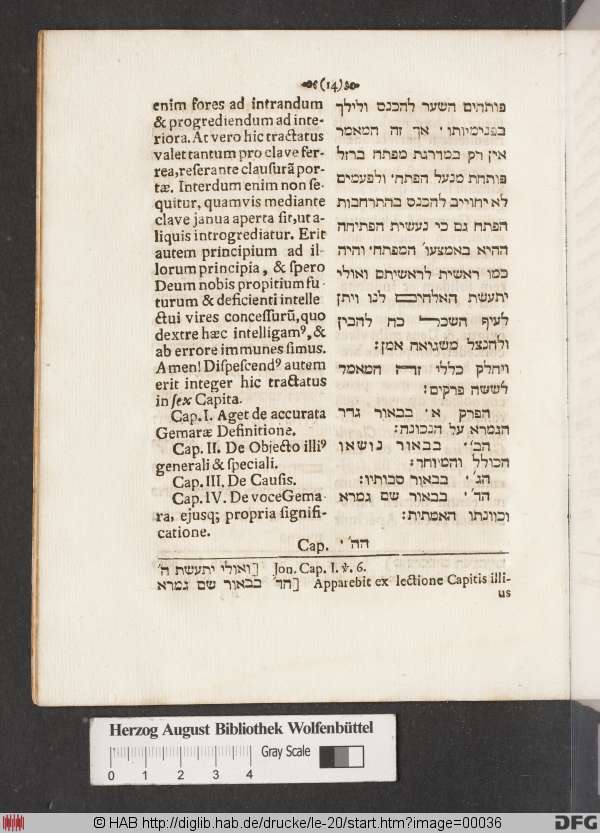 (14)
enim fores ad intrandum
& progrediendum ad inte-
riora. At vero hic tractatus
valet tantum pro clave fer-
rea, reserante clausurã por-
tæ. Interdum enim non se-
quitur, quamvis mediante
clave janua aperta sit, ut a-
liquis introgrediatur. Erit
autem principium ad il-
lorum principia, & spero
Deum nobis propitium fu-
turum & deficienti intelle-
ctui vires concessurũ, quo
dextre hæc intelligamꝰ, &
ab errore immunes simus.
Amen! Dispescendꝰ autem
erit integer hic tractatus
in sex Capita.
Cap. I. Aget de accurata
Gemaræ Definitione.
Cap. II. De Objecto illiꝰ
generali & speciali.
Cap. III. De Causis.
Cap. IV. De voce Gema-
ra, ejusq; propria signifi-
catione.
Cap.
פותהים השער להכנס ולילך
בפנימיותו׳ אך זה המאמר
אין רק במדרגת מפתח ברזל
פותחת מנעל הפתח׳ ולפעמים
לא יחוייב להכנס בהתרחבות
הפתח גם כי נעשית הפתיחה
ההיא באמצעו׳ המפתח׳ והיה
כמו ראשית לראשיתם ואולי
יתעשת האלהים לנו ויתן
לעיף השכל כח להבין
ולהנצל משגיאה אמן:
ויחלק כללי זה המאמר
לששה פרקים:
הפרק א׳ בבאור גדר
הגמרא על הנכונה:
הב׳ בבאור נושאו
הכולל והמיוחד:
הג׳ בבאור סבותיו:
הד׳ בבאור שם גמרא
וכוונתו האמתית:
הה׳
ואולי יתעשת ה׳] Jon. Cap. I. v. 6.
הד׳ בבאור שם גמרא] Apparebit ex lectione Capitis illi-
us
Herzog August Bibliothek Wolfenbüttel
Gray Scale
0 1 2 3 4
© HAB http://diglib.hab.de/drucke/le-20/start.htm?image=00036
DFG